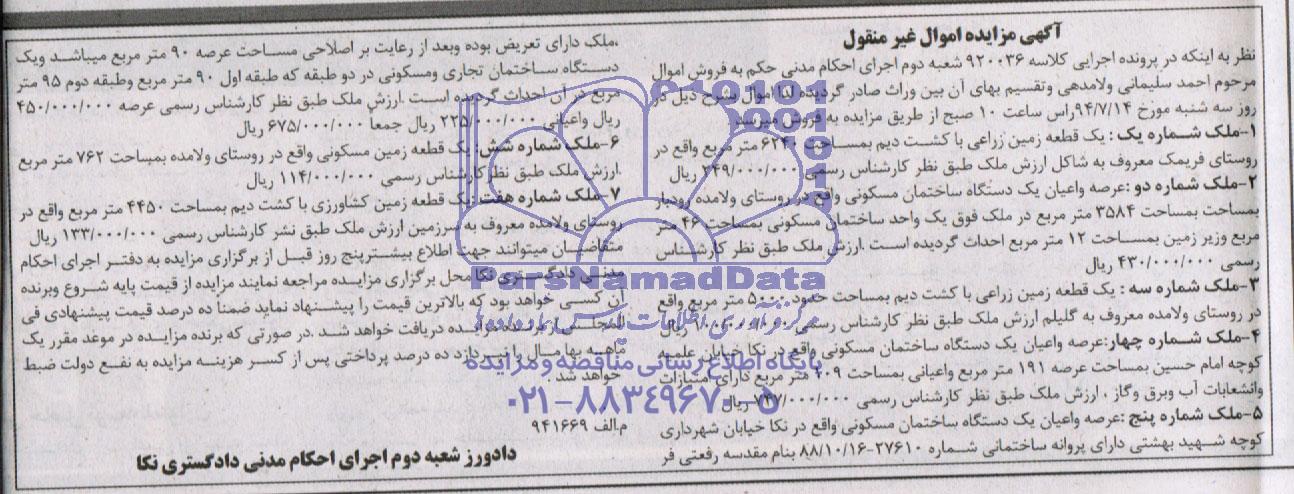 آگهی مزایده اموال غیر منقول
نظر به اینکه در پرونده اجرایی کلاسه ۹۲۰۰۳۶ شعبه دوم اجرای احکام مدنی حکم به فروش اموال
مرحوم احمد سلیمانی ولامدهی وتقسیم بهای آن بین وراث صادر گردیده لذا اموال بشرح ذیل در
روز سه شنبه مورخ ۹۴/۷/۱۴ راس ساعت ۱۰ صبح از طریق مزایده به فروش میرسد
۱-ملک شماره یک : یک قطعه زمین زراعی با کشت دیم بمساحت ۶۲۴۰ متر مربع واقع در
روستای فریمک معروف به شاکل ارزش ملک طبق نظر کارشناس رسمی ۲۴۹/۰۰۰/۰۰۰ ریال
۲-ملک شماره دو :عرصه واعیان یک دستگاه ساختمان مسکونی واقع در روستای ولامده رودبار
بمساحت بمساحت ۳۵۸۴ متر مربع در ملک فوق یک واحد ساختمان مسکونی بمساحت ۴۶ متر
مربع وزیر زمین بمساحت ۱۲ متر مربع احداث گردیده است .ارزش ملک طبق نظر کارشناس
رسمی ۴۳۰/۰۰۰/۰۰۰ ریال
۳-ملک شماره سه : یک قطعه زمین زراعی با کشت دیم بمساحت حدود متر مربع واقع
در روستای ولامده معروف به گلیلم ارزش ملک طبق نظر کارشناس رسمی ریال
۴-ملک شماره چهار:عرصه واعیان یک دستگاه ساختمان مسکونی واقع در نکا خیابان
کوچه امام حسین بمساحت عرصه ۱۹۱ متر مربع واعیانی بمساحت ۱۰۹ متر مربع دارای امتیازات
وانشعابات آب وبرق وگاز ، ارزش ملک طبق نظر کارشناس رسمی ۷۴۷/۰۰۰/۰۰۰ ریال
۵-ملک شماره پنج :عرصه واعیان یک دستگاه ساختمان مسکونی واقع در نکا خیابان شهرداری
کوچه شهید بهشتی دارای پروانه ساختمانی شماره ۲۷۶۱۰-۸۸/۱۰/۱۶ بنام مقدسه رفعتی فر
،ملک دارای تعریض بوده وبعد از رعایت بر اصلاحی مساحت عرصه ۹۰ متر مربع میباشد ویک
دستگاه ساختمان تجاری ومسکونی در دو طبقه که طبقه اول ۹۰ متر مربع وطبقه دوم ۹۵ متر
مربع در آن احداث گردیده است .ارزش ملک طبق نظر کارشناس رسمی عرصه ۴۵۰/۰۰۰/۰۰۰
ریال واعیانی ۲۲۵/۰۰۰/۰۰۰ ریال جمعا ۶۷۵/۰۰۰/۰۰۰ ریال
۶-ملک شماره شش: یک قطعه زمین مسکونی واقع در روستای ولامده بمساحت ۷۶۲ متر مربع
.ارزش ملک طبق نظر کارشناس رسمی ۱۱۴/۰۰۰/۰۰۰ ریال
۷-ملک شماره هفت :یک قطعه زمین کشاورزی با کشت دیم بمساحت ۴۴۵۰ متر مربع واقع در
روستای ولامده معروف به سرزمین ارزش ملک طبق نشر کارشناس رسمی ۱۳۳/۰۰۰/۰۰۰ ریال
متقاضیان میتوانند جهت اطلاع بیشترپنج روز قبل از برگزاری مزایده به دفتر اجرای احکام
مدنی دادگستری نکا محل برگزاری مزایده مراجعه نمایند مزایده از قیمت پایه شروع وبرنده
آن کسی خواهد بود که بالاترین قیمت را پیشنهاد نماید ضمنا ده درصد قیمت پیشنهادی فی
المجلس از برنده مزایده دریافت خواهد شد .در صورتی که برنده مزایده در موعد مقرر یک
ماهه بها مال را نپردازد ده درصد پرداختی پس از کسر هزینه مزایده به نفع دولت ضبط
خواهد شد .
م.الف ۹۴۱۶۶۹
دادورز شعبه دوم اجرای احکام مدنی دادگستری نکا
ParsNamadData
مرکز فرآوری اطلاعات پارس نماد داده ها
پایگاه اطلاع رسانی مناقصه و مزایده
۰۲۱-۸۸۳۴۹۶۷۰-۵